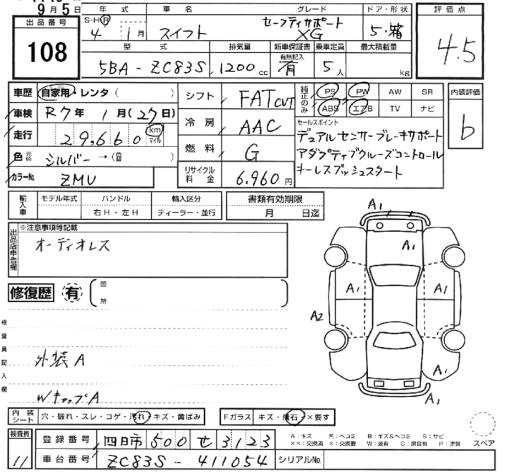 9月5日
出品番号
108
年式 グレード ドア・形状 評価点
S・H・R 4 1月 スイフト セーフティサポート XG 5・箱 4.5
型式 排気量 新車保証書 乗車定員 最大積載量
有無記入
5BA - ZC83S 1200cc 有 5人 kg
車歴 自家用・レンタ( )
車検 R7年 1月(27)日
走行 29,660 km マイル
色 シルバー→( )
カラーNo. ZMU
シフト FAT CVT
冷房 AAC
燃料 G
リサイクル料金 6,960円
純正のみ PS PW AW SR
ABS エアB TV ナビ
セールスポイント
デュアルセンサーブレーキサポート
アダプティブクルーズコントロール
キーレスプッシュスタート
内装評価
b
輸入車 モデル年式 ハンドル 輸入区分 書類有効期限
右H・左H ディーラー・並行 月 日迄
出品店申告欄
※注意事項等記載
オーディオレス
修復歴 有 箇所
検査員記入欄
外装A
WキャップA
A1
A1
A1 A1
A2
A1
A1
内装シート 穴・破れ・スレ・コゲ・汚れ・キズ・黄ばみ Fガラス キズ・飛石・×要す
スペア
検査員 11
登録番号 四日市 500 せ 3123
車台番号 ZC83S - 411054 シリアルNo.